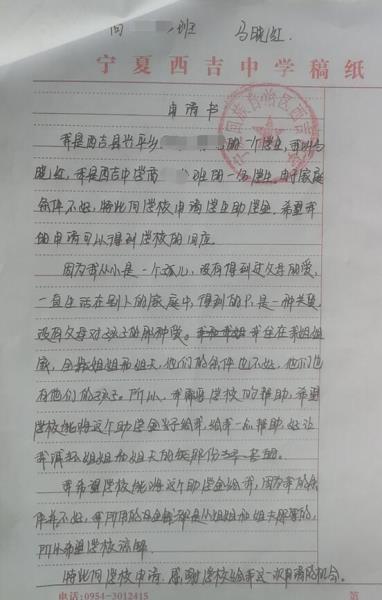 高 班 马晓红.
宁夏西吉中学稿纸
申请书
我是西吉县兴平乡 的一个学生,我叫马
晓红,我是西吉中学高 班的一位学生。由于家庭
条件不好,特此向学校申请学生助学金,希望我
的申请可以得到学校的回应。
因为我从小是一个孤儿,没有得到过父母的爱,
一直生活在别人的家庭中,得到的只是一种关心
没有父母对孩子的那种爱。 我住在我姐姐
家,全靠姐姐和姐夫,他们的条件也不好,他们也
有他们的孩子。所以,我需要学校的帮助,希望
学校能将这个助学金给我,给我一点帮助,好让
我减轻姐姐和姐夫的
我希望学校能将这个助学金给我,因为我的条
件不好,我所用的 都是从姐姐和姐夫那拿的,
所以希望学校谅解。
特此向学校申请,感谢学校给我这一次申请的机会。
电话:0954-3012415 第